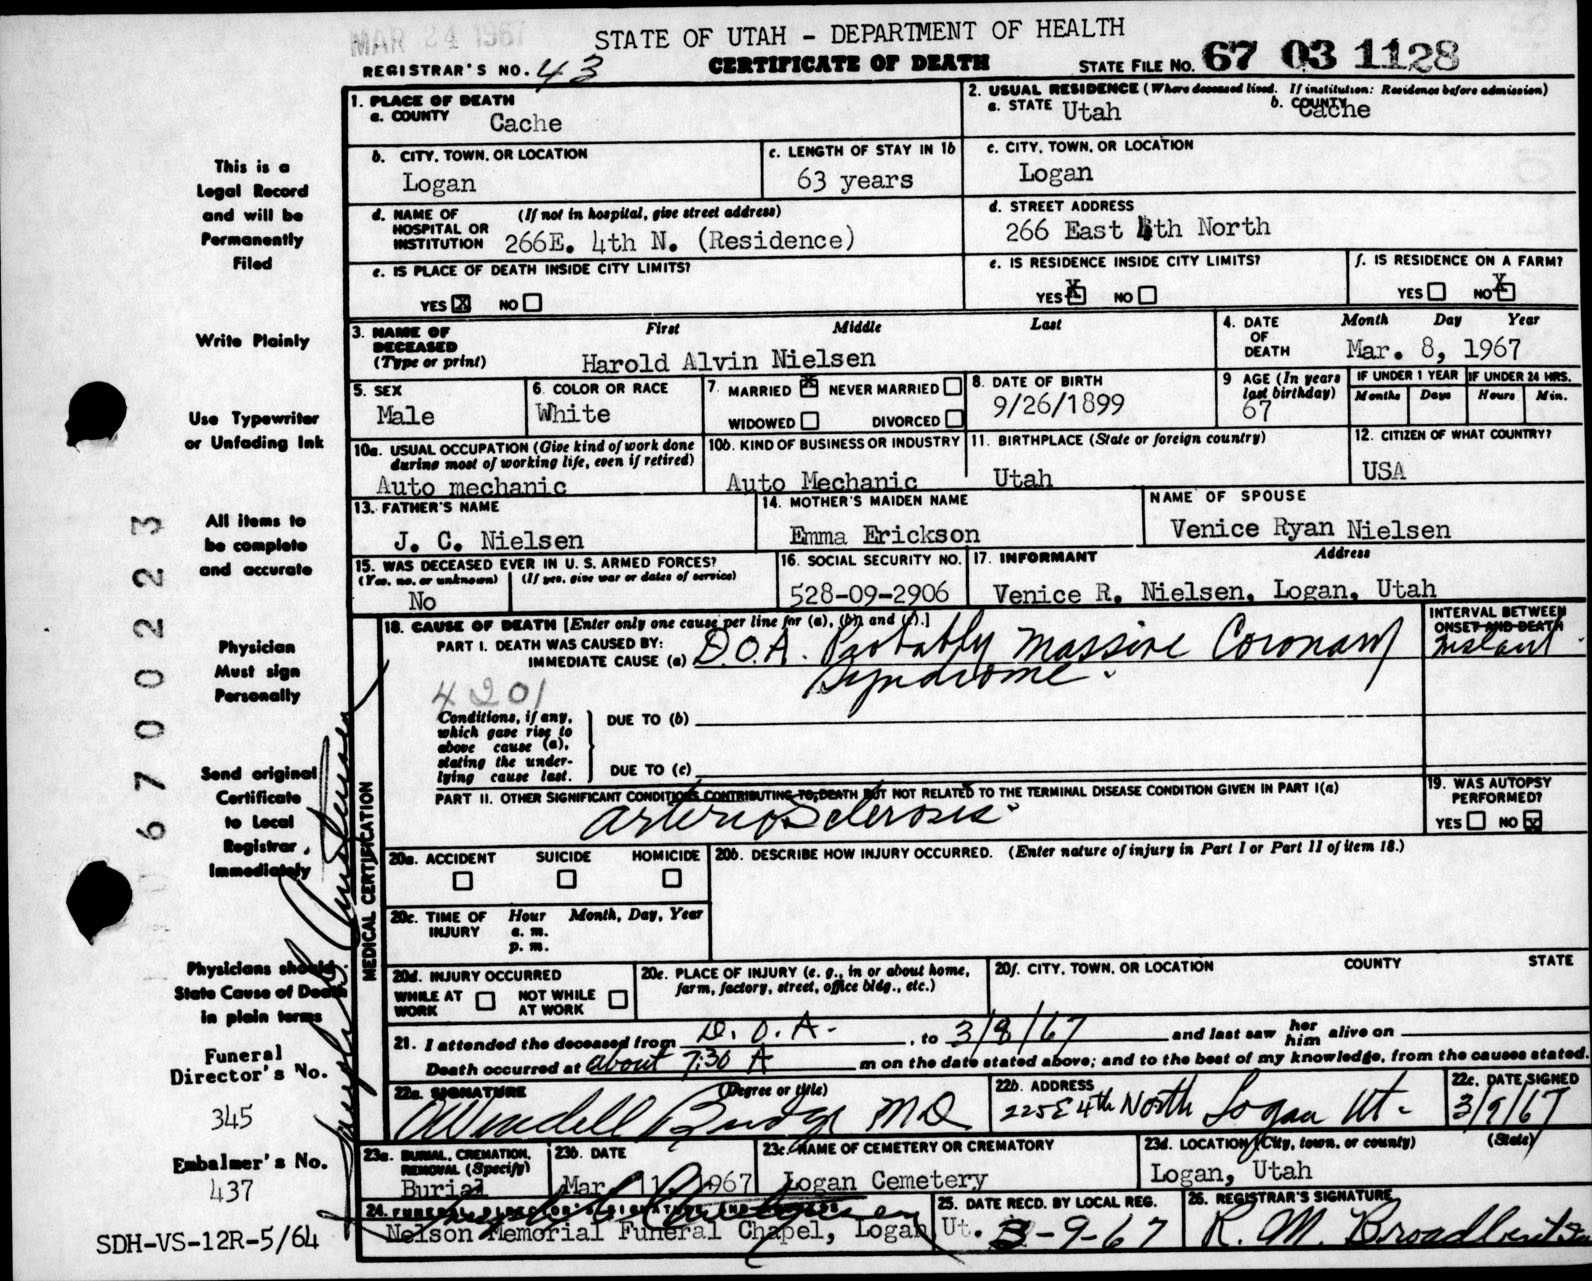 MAR 24 1967
STATE OF UTAH - DEPARTMENT OF HEALTH
CERTIFICATE OF DEATH
REGISTRAR'S NO. 43
STATE FILE NO. 67 03 1128
1. PLACE OF DEATH
a. COUNTY Cache
2. USUAL RESIDENCE (Where deceased lived. If institution: Residence before admission)
a. STATE Utah b. COUNTY Cache
b. CITY, TOWN, OR LOCATION
Logan
c. LENGTH OF STAY IN 1b
63 years
c. CITY, TOWN, OR LOCATION
Logan
d. NAME OF HOSPITAL OR INSTITUTION (If not in hospital, give street address)
266E. 4th N. (Residence)
d. STREET ADDRESS
266 East 4th North
e. IS PLACE OF DEATH INSIDE CITY LIMITS?
YES X NO
e. IS RESIDENCE INSIDE CITY LIMITS?
YES X NO
f. IS RESIDENCE ON A FARM?
YES NO X
3. NAME OF DECEASED (Type or print)
First Middle Last
Harold Alvin Nielsen
4. DATE OF DEATH Month Day Year
Mar. 8, 1967
5. SEX
Male
6. COLOR OR RACE
White
7. MARRIED X NEVER MARRIED
WIDOWED DIVORCED
8. DATE OF BIRTH
9/26/1899
9 AGE (In years last birthday)
67
IF UNDER 1 YEAR IF UNDER 24 HRS.
Months Days Hours Min.
10a. USUAL OCCUPATION (Give kind of work done during most of working life, even if retired)
Auto mechanic
10b. KIND OF BUSINESS OR INDUSTRY
Auto Mechanic
11. BIRTHPLACE (State or foreign country)
Utah
12. CITIZEN OF WHAT COUNTRY?
USA
13. FATHER'S NAME
J. C. Nielsen
14. MOTHER'S MAIDEN NAME
Emma Erickson
NAME OF SPOUSE
Venice Ryan Nielsen
15. WAS DECEASED EVER IN U. S. ARMED FORCES?
(Yes, no, or unknown) (If yes, give war or dates of service)
No
16. SOCIAL SECURITY NO.
528-09-2906
17. INFORMANT Address
Venice R. Nielsen, Logan, Utah
MEDICAL CERTIFICATION
18. CAUSE OF DEATH [Enter only one cause per line for (a), (b), and (c).]
INTERVAL BETWEEN ONSET AND DEATH
PART I. DEATH WAS CAUSED BY:
IMMEDIATE CAUSE (a) D.O.A. Probably Massive Coronary Syndrome. Instant
4201
Conditions, if any, which gave rise to above cause (a), stating the underlying cause last.
DUE TO (b)
DUE TO (c)
PART II. OTHER SIGNIFICANT CONDITIONS CONTRIBUTING TO DEATH BUT NOT RELATED TO THE TERMINAL DISEASE CONDITION GIVEN IN PART I(a)
Arteriosclerosis.
19. WAS AUTOPSY PERFORMED?
YES NO X
20a. ACCIDENT SUICIDE HOMICIDE
20b. DESCRIBE HOW INJURY OCCURRED. (Enter nature of injury in Part I or Part II of item 18.)
20c. TIME OF INJURY Hour Month, Day, Year
a. m.
p. m.
20d. INJURY OCCURRED
WHILE AT WORK NOT WHILE AT WORK
20e. PLACE OF INJURY (e. g., in or about home, farm, factory, street, office bldg., etc.)
20f. CITY, TOWN, OR LOCATION COUNTY STATE
21. I attended the deceased from D. O. A. , to 3/8/67 and last saw her him alive on
Death occurred at about 7:30 A m on the date stated above; and to the best of my knowledge, from the causes stated.
22a. SIGNATURE (Degree or title)
O Wendell Budge MD
22b. ADDRESS
225 E 4th North Logan Ut.
22c. DATE SIGNED
3/9/67
23a. BURIAL, CREMATION, REMOVAL (Specify)
Burial
23b. DATE
Mar 11, 1967
23c. NAME OF CEMETERY OR CREMATORY
Logan Cemetery
23d. LOCATION (City, town, or county) (State)
Logan, Utah
24. FUNERAL DIRECTOR'S SIGNATURE AND ADDRESS
Nelson Memorial Funeral Chapel, Logan Ut.
25. DATE RECD. BY LOCAL REG.
3-9-67
26. REGISTRAR'S SIGNATURE
R. M. Broadbent
This is a
Legal Record
and will be
Permanently
Filed
Write Plainly
Use Typewriter
or Unfading Ink
All items to
be complete
and accurate
Physician
Must sign
Personally
Send original
Certificate
to Local
Registrar,
Immediately
Physicians should
State Cause of Death
in plain terms
Funeral
Director's No.
345
Embalmer's No.
437
SDH-VS-12R-5/64
06700223